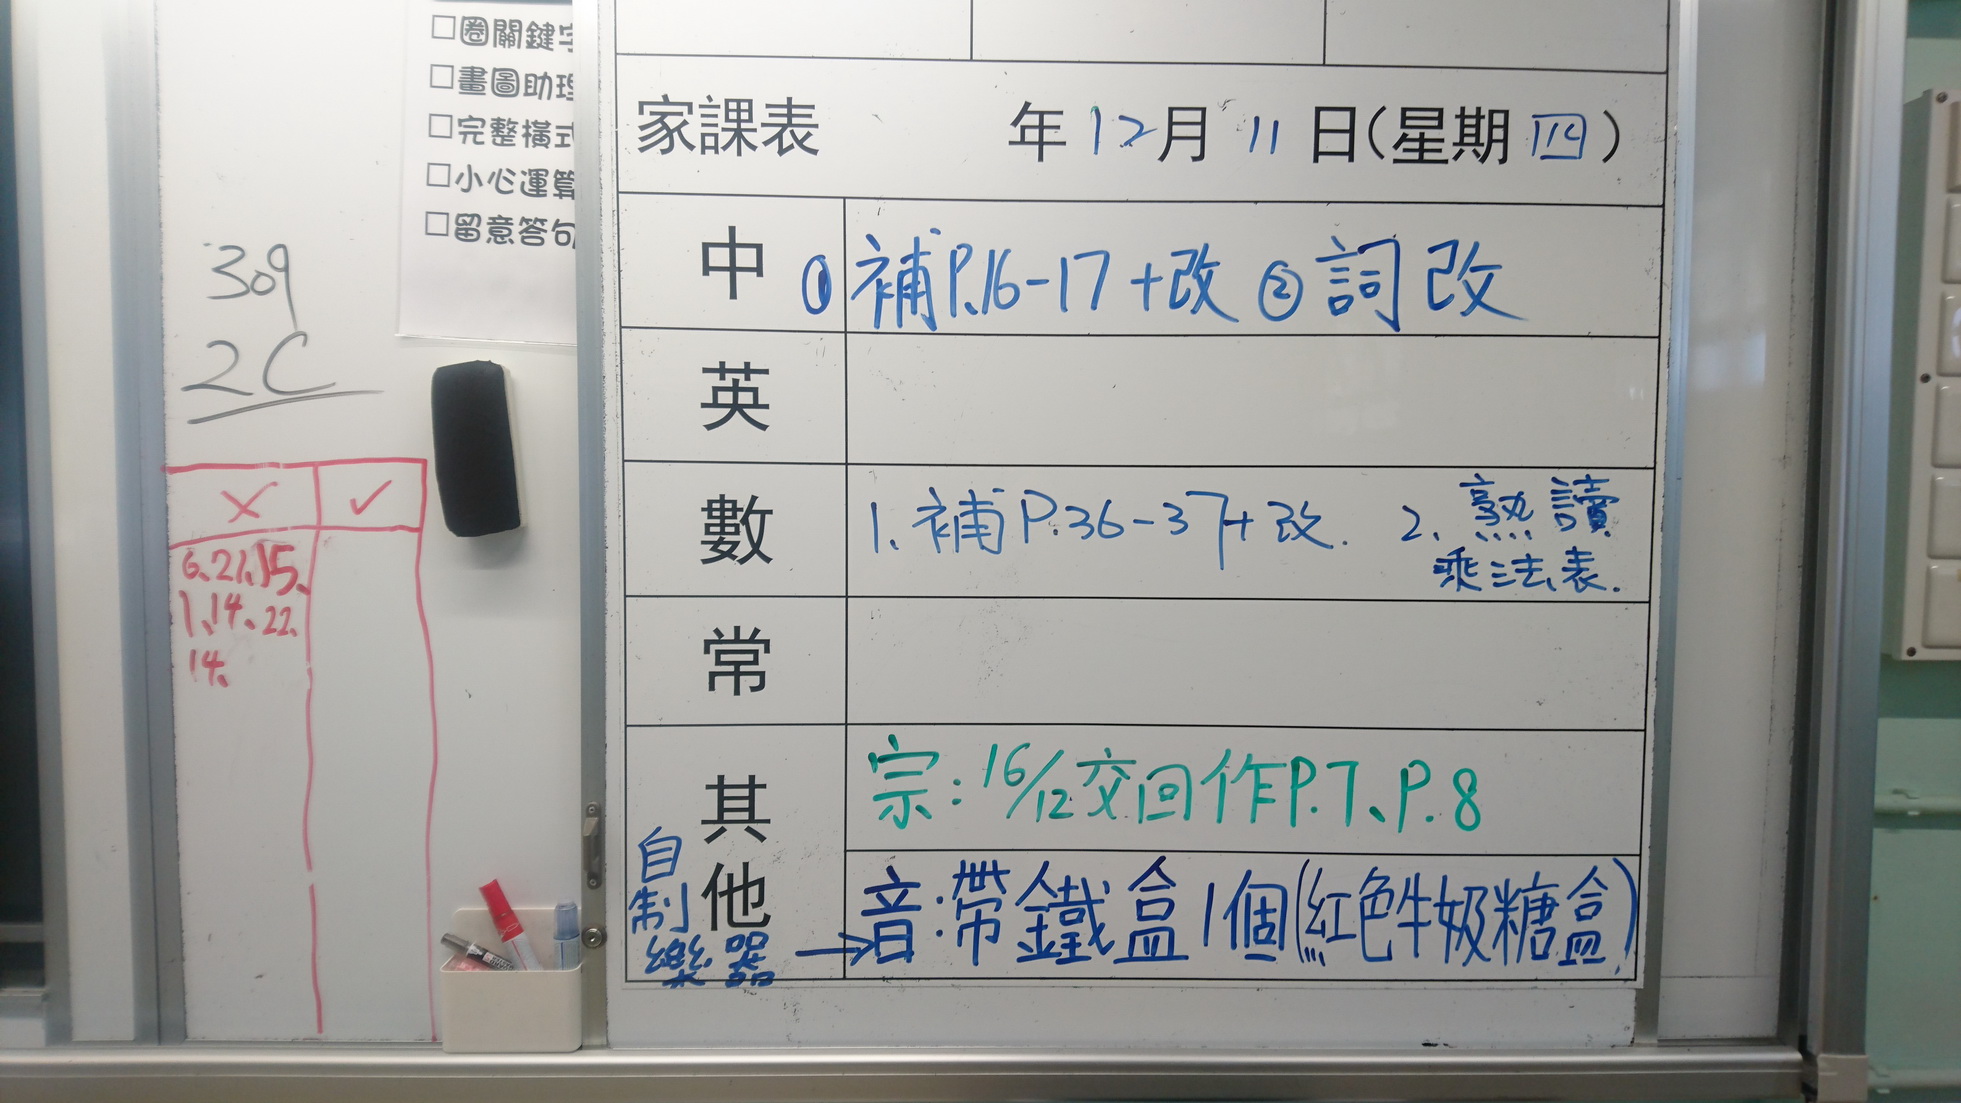 □圈關鍵字
□畫圖助理
□完整橫式
□小心運算
□留意答句
309
2C
× ✓
6、21、15、
1、14、22、
14、
家課表 年12月11日(星期四)
中 ①補P.16-17+改 ②詞改
英
數 1、補P.36-37+改. 2、熟讀
乘法表.
常
其他 宗:16/12交回作P.7、P.8
自制樂器→音:帶鐵盒1個(紅色牛奶糖盒)